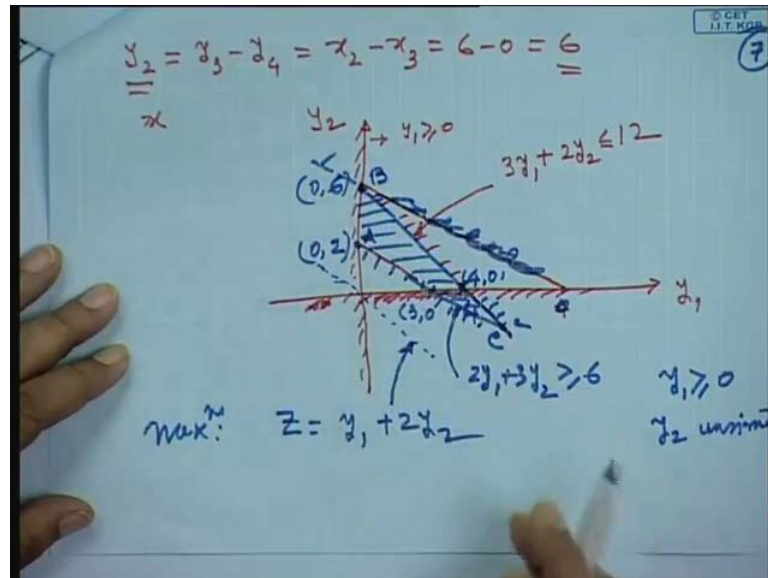 © CET
I.I.T. KGP
7
y₂ = y₃ - y₄ = x₂ - x₃ = 6 - 0 = 6
x
y₂
→ y₁ ≥ 0
3y₁ + 2y₂ ≤ 12
(0,6) B
(0,2) A
(4,0)
y₁
(3,0
C
2y₁ + 3y₂ ≥ 6
y₁ ≥ 0
max^m: Z = y₁ + 2y₂
y₂